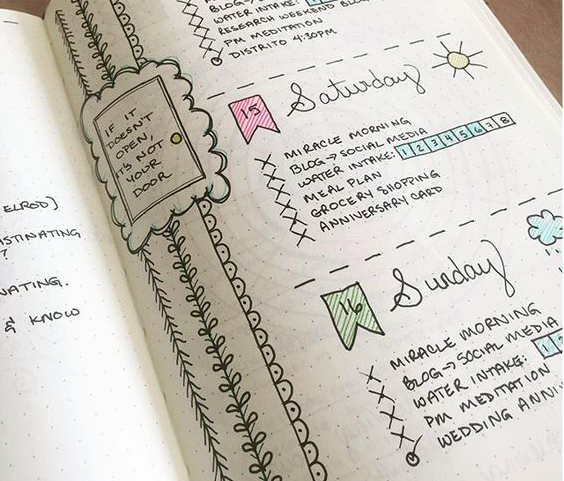 ELROD)
ISTINATING
?
NATING.
& KNOW
BLOG→
WATER INTAKE:
RESEARCH WEEKEND BLOG
PM MEDITATION
DISTRITO 4:30PM
IF IT
DOESN'T
OPEN,
IT'S NOT
YOUR
DOOR
15 Saturday
MIRACLE MORNING
BLOG→SOCIAL MEDIA
WATER INTAKE: 1 2 3 4 5 6 7 8
MEAL PLAN
GROCERY SHOPPING
ANNIVERSARY CARD
16 Sunday
MIRACLE MORNING
BLOG→SOCIAL MEDIA
WATER INTAKE: 1 2
PM MEDITATION
WEDDING ANNI